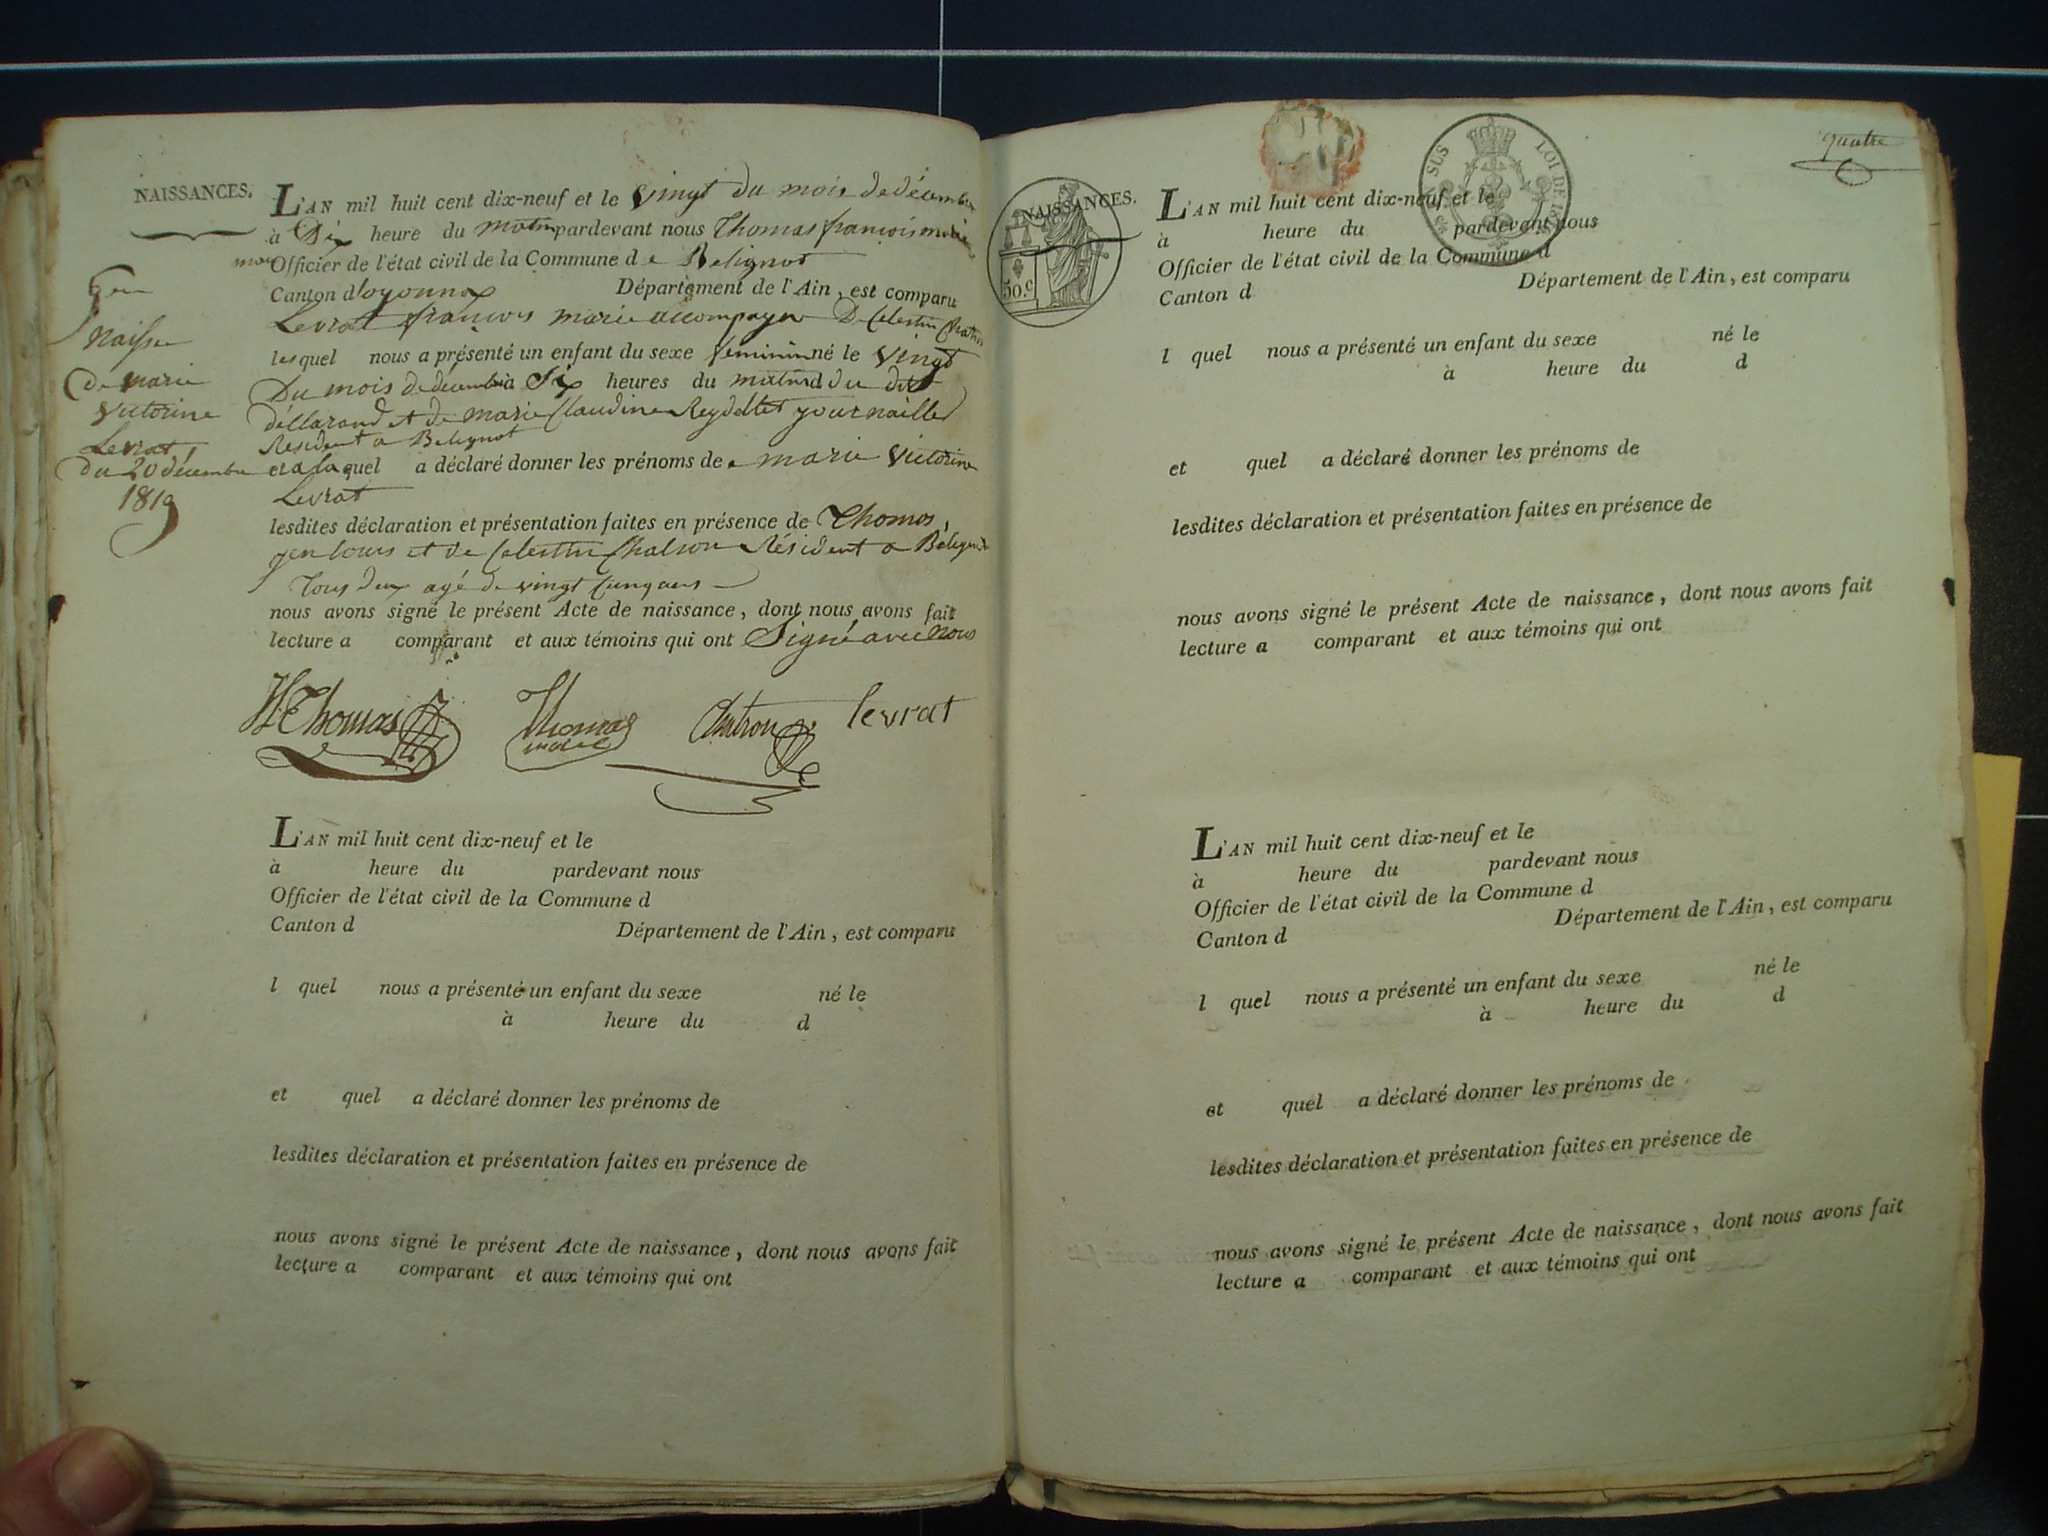 NAISSANCES.
L'AN mil huit cent dix-neuf et le vingt du mois de décembre
à Dix heure du matin pardevant nous Thomas francois marie
maire Officier de l'état civil de la Commune de Belignat
Canton d'oyonnax Département de l'Ain, est comparu
Levrat francois marie accompagné De Celestin Chatron
lesquel nous a présenté un enfant du sexe feminin né le vingt
Du mois de décembre à Six heures du matin d du dit
déllarand et de marie Claudine Reydellet journailler
Resident a Belignat
et a laquel a déclaré donner les prénoms de marie Victorine
Levrat
lesdites déclaration et présentation faites en présence de Thomas,
jen louis et de Celestin Chatron Résident a Belignat
Tous deux agé de vingt cinq ans
nous avons signé le présent Acte de naissance, dont nous avons fait
lecture a comparant et aux témoins qui ont Signé avec nous
Thomas Thomas maire Chatron levrat
5em
naissance
De marie
Victorine
Levrat
du 20 décembre
1819
L'AN mil huit cent dix-neuf et le
à heure du pardevant nous
Officier de l'état civil de la Commune d
Canton d Département de l'Ain, est comparu
l quel nous a présenté un enfant du sexe né le
à heure du d
et quel a déclaré donner les prénoms de
lesdites déclaration et présentation faites en présence de
nous avons signé le présent Acte de naissance, dont nous avons fait
lecture a comparant et aux témoins qui ont
quatre
SUS LOI DE
50.c
NAISSANCES.
L'AN mil huit cent dix-neuf et le
à heure du pardevant nous
Officier de l'état civil de la Commune d
Canton d Département de l'Ain, est comparu
l quel nous a présenté un enfant du sexe né le
à heure du d
et quel a déclaré donner les prénoms de
lesdites déclaration et présentation faites en présence de
nous avons signé le présent Acte de naissance, dont nous avons fait
lecture a comparant et aux témoins qui ont
L'AN mil huit cent dix-neuf et le
à heure du pardevant nous
Officier de l'état civil de la Commune d
Canton d Département de l'Ain, est comparu
l quel nous a présenté un enfant du sexe né le
à heure du d
et quel a déclaré donner les prénoms de
lesdites déclaration et présentation faites en présence de
nous avons signé le présent Acte de naissance, dont nous avons fait
lecture a comparant et aux témoins qui ont